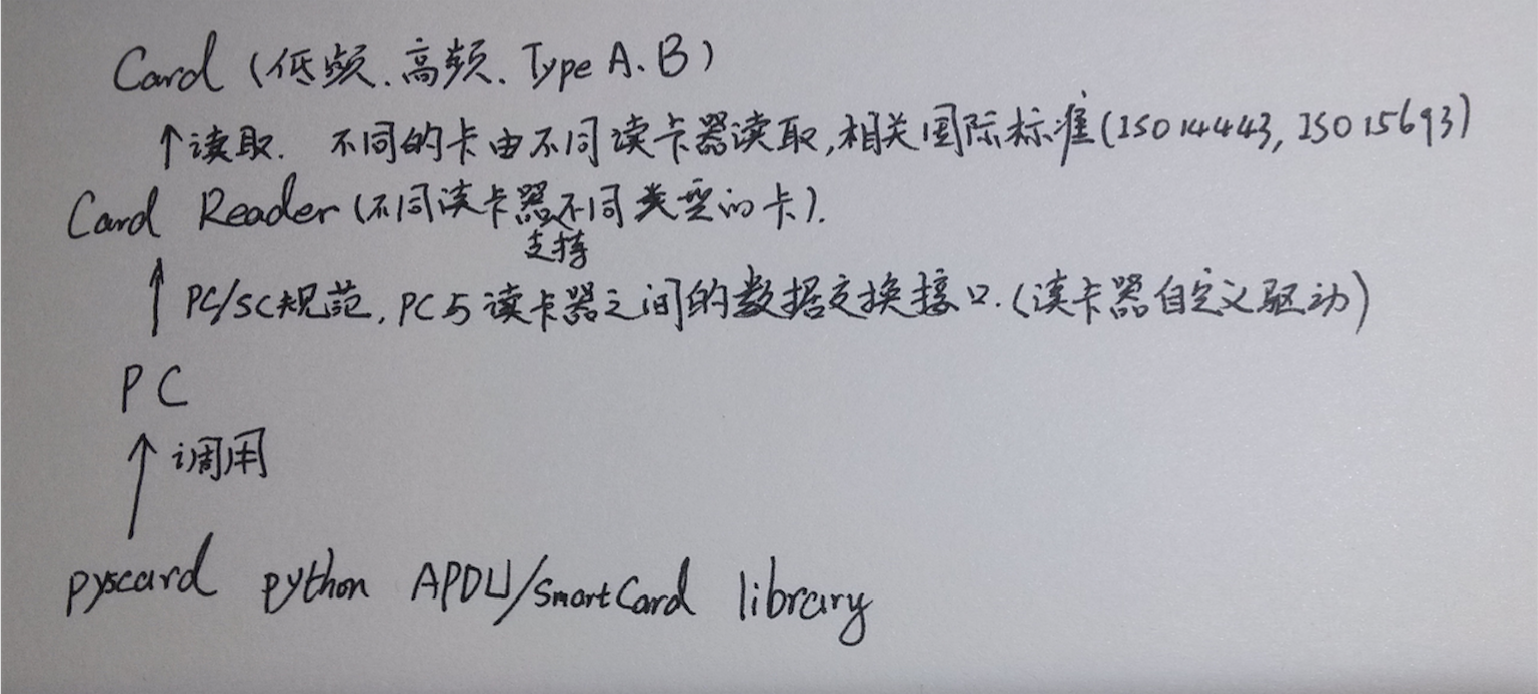 Card (低频、高频、Type A、B)
↑读取. 不同的卡由不同读卡器读取,相关国际标准(ISO 14443, ISO 15693)
Card Reader (不同读卡器支持不同类型的卡).
↑ PC/SC规范, PC与读卡器之间的数据交换接口.(读卡器自定义驱动)
PC
↑调用
pyscard python APDU/SmartCard library